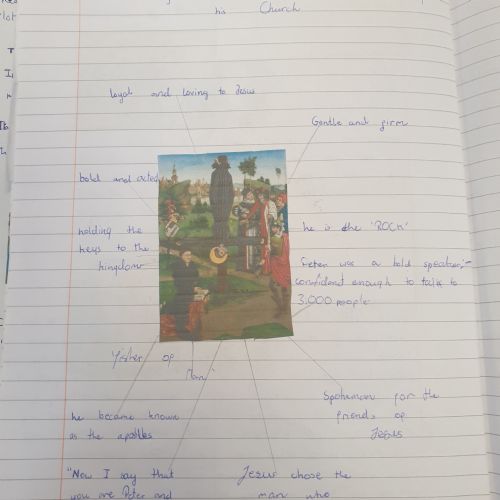 his Church
loyal and loving to Jesus
Gentle and firm
bold and acted
holding the
keys to the
kingdom
he is the 'ROCK'
Peter was a bold speaker,-
confident enough to talk to
3,000 people
'Fisher of
Man'
Spokeman for the
friends of
Jesus
he became known
as the apostles
"Now I say that
you are Peter and
Jesus chose the
man who